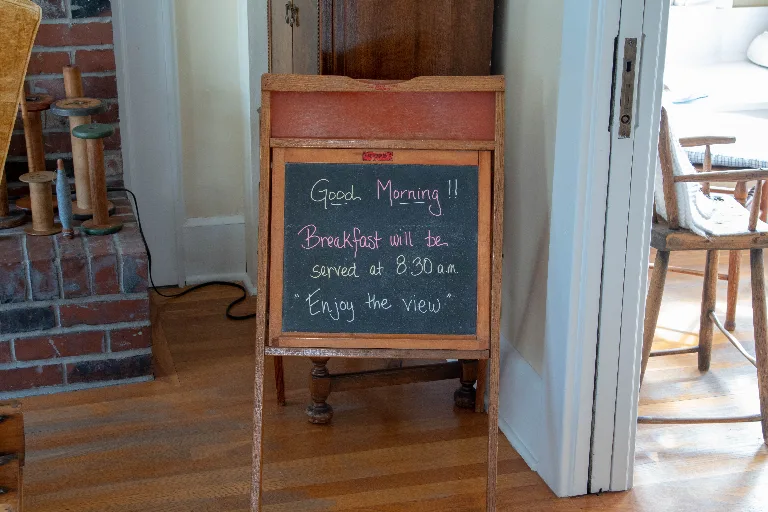 Good Morning !!
Breakfast will be
served at 8:30 a.m.
"Enjoy the view"